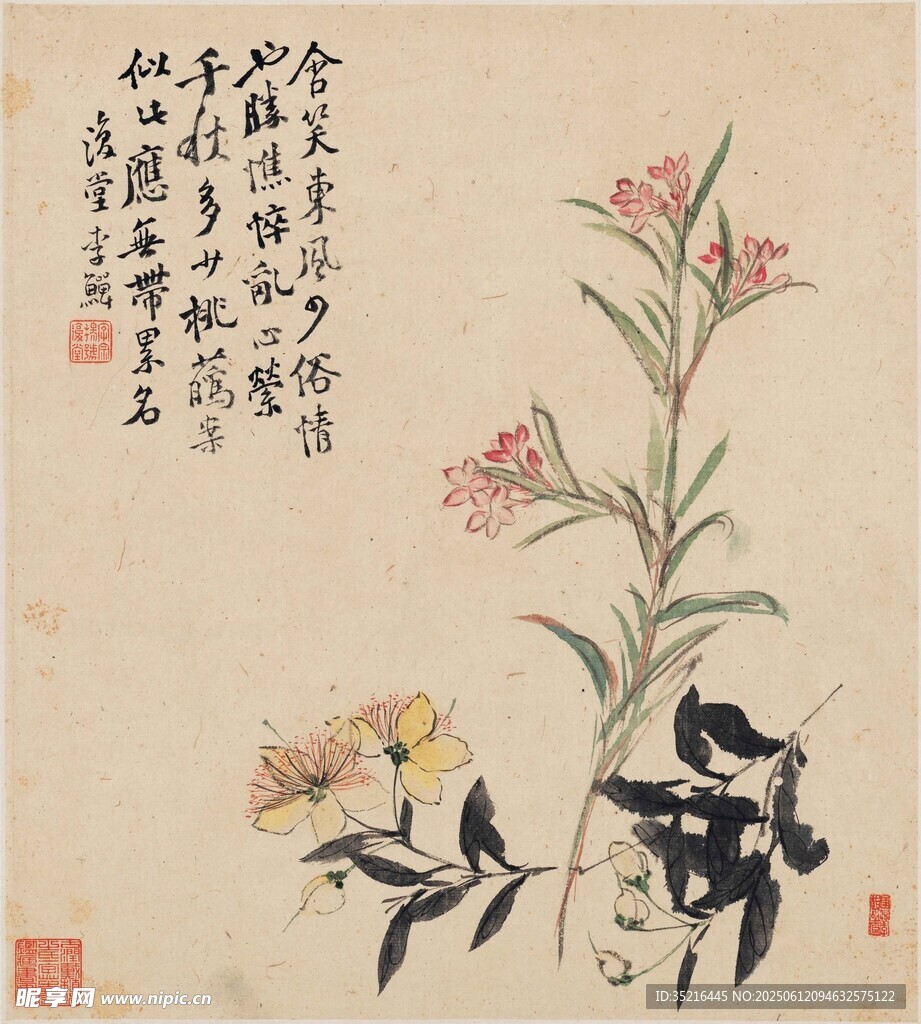 含笑東風少俗情
也勝憔悴亂心縈
千秋多少桃
似此應無帶累名
復堂李鱓
昵享网 www.nipic.cn
ID:35216445 NO:20250612094632575122